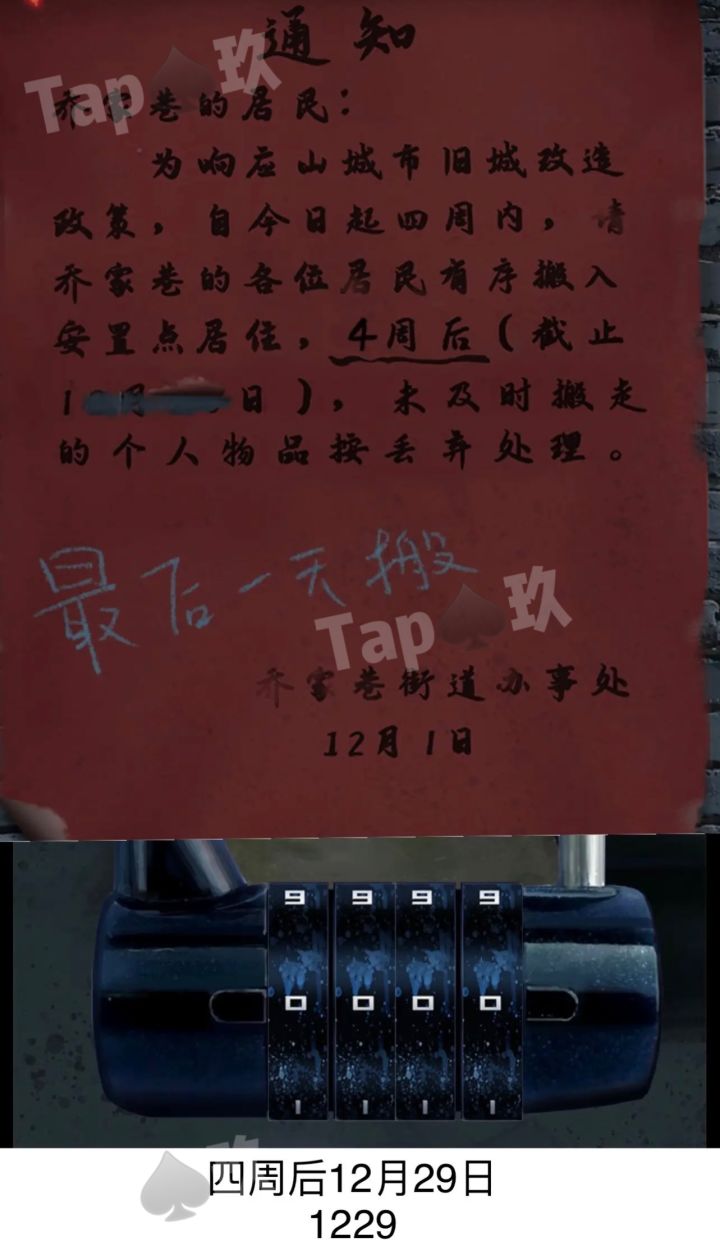 通知
乔家巷的居民：
为响应山城市旧城改造
政策，自今日起四周内，请
乔家巷的各位居民有序搬入
安置点居住，4周后（截止
1 月 日），未及时搬走
的个人物品按丢弃处理。
最后一天搬
乔家巷街道办事处
12月1日
Tap 玖
Tap 玖
9 9 9 9
0 0 0 0
1 1 1 1
玖
四周后12月29日
1229